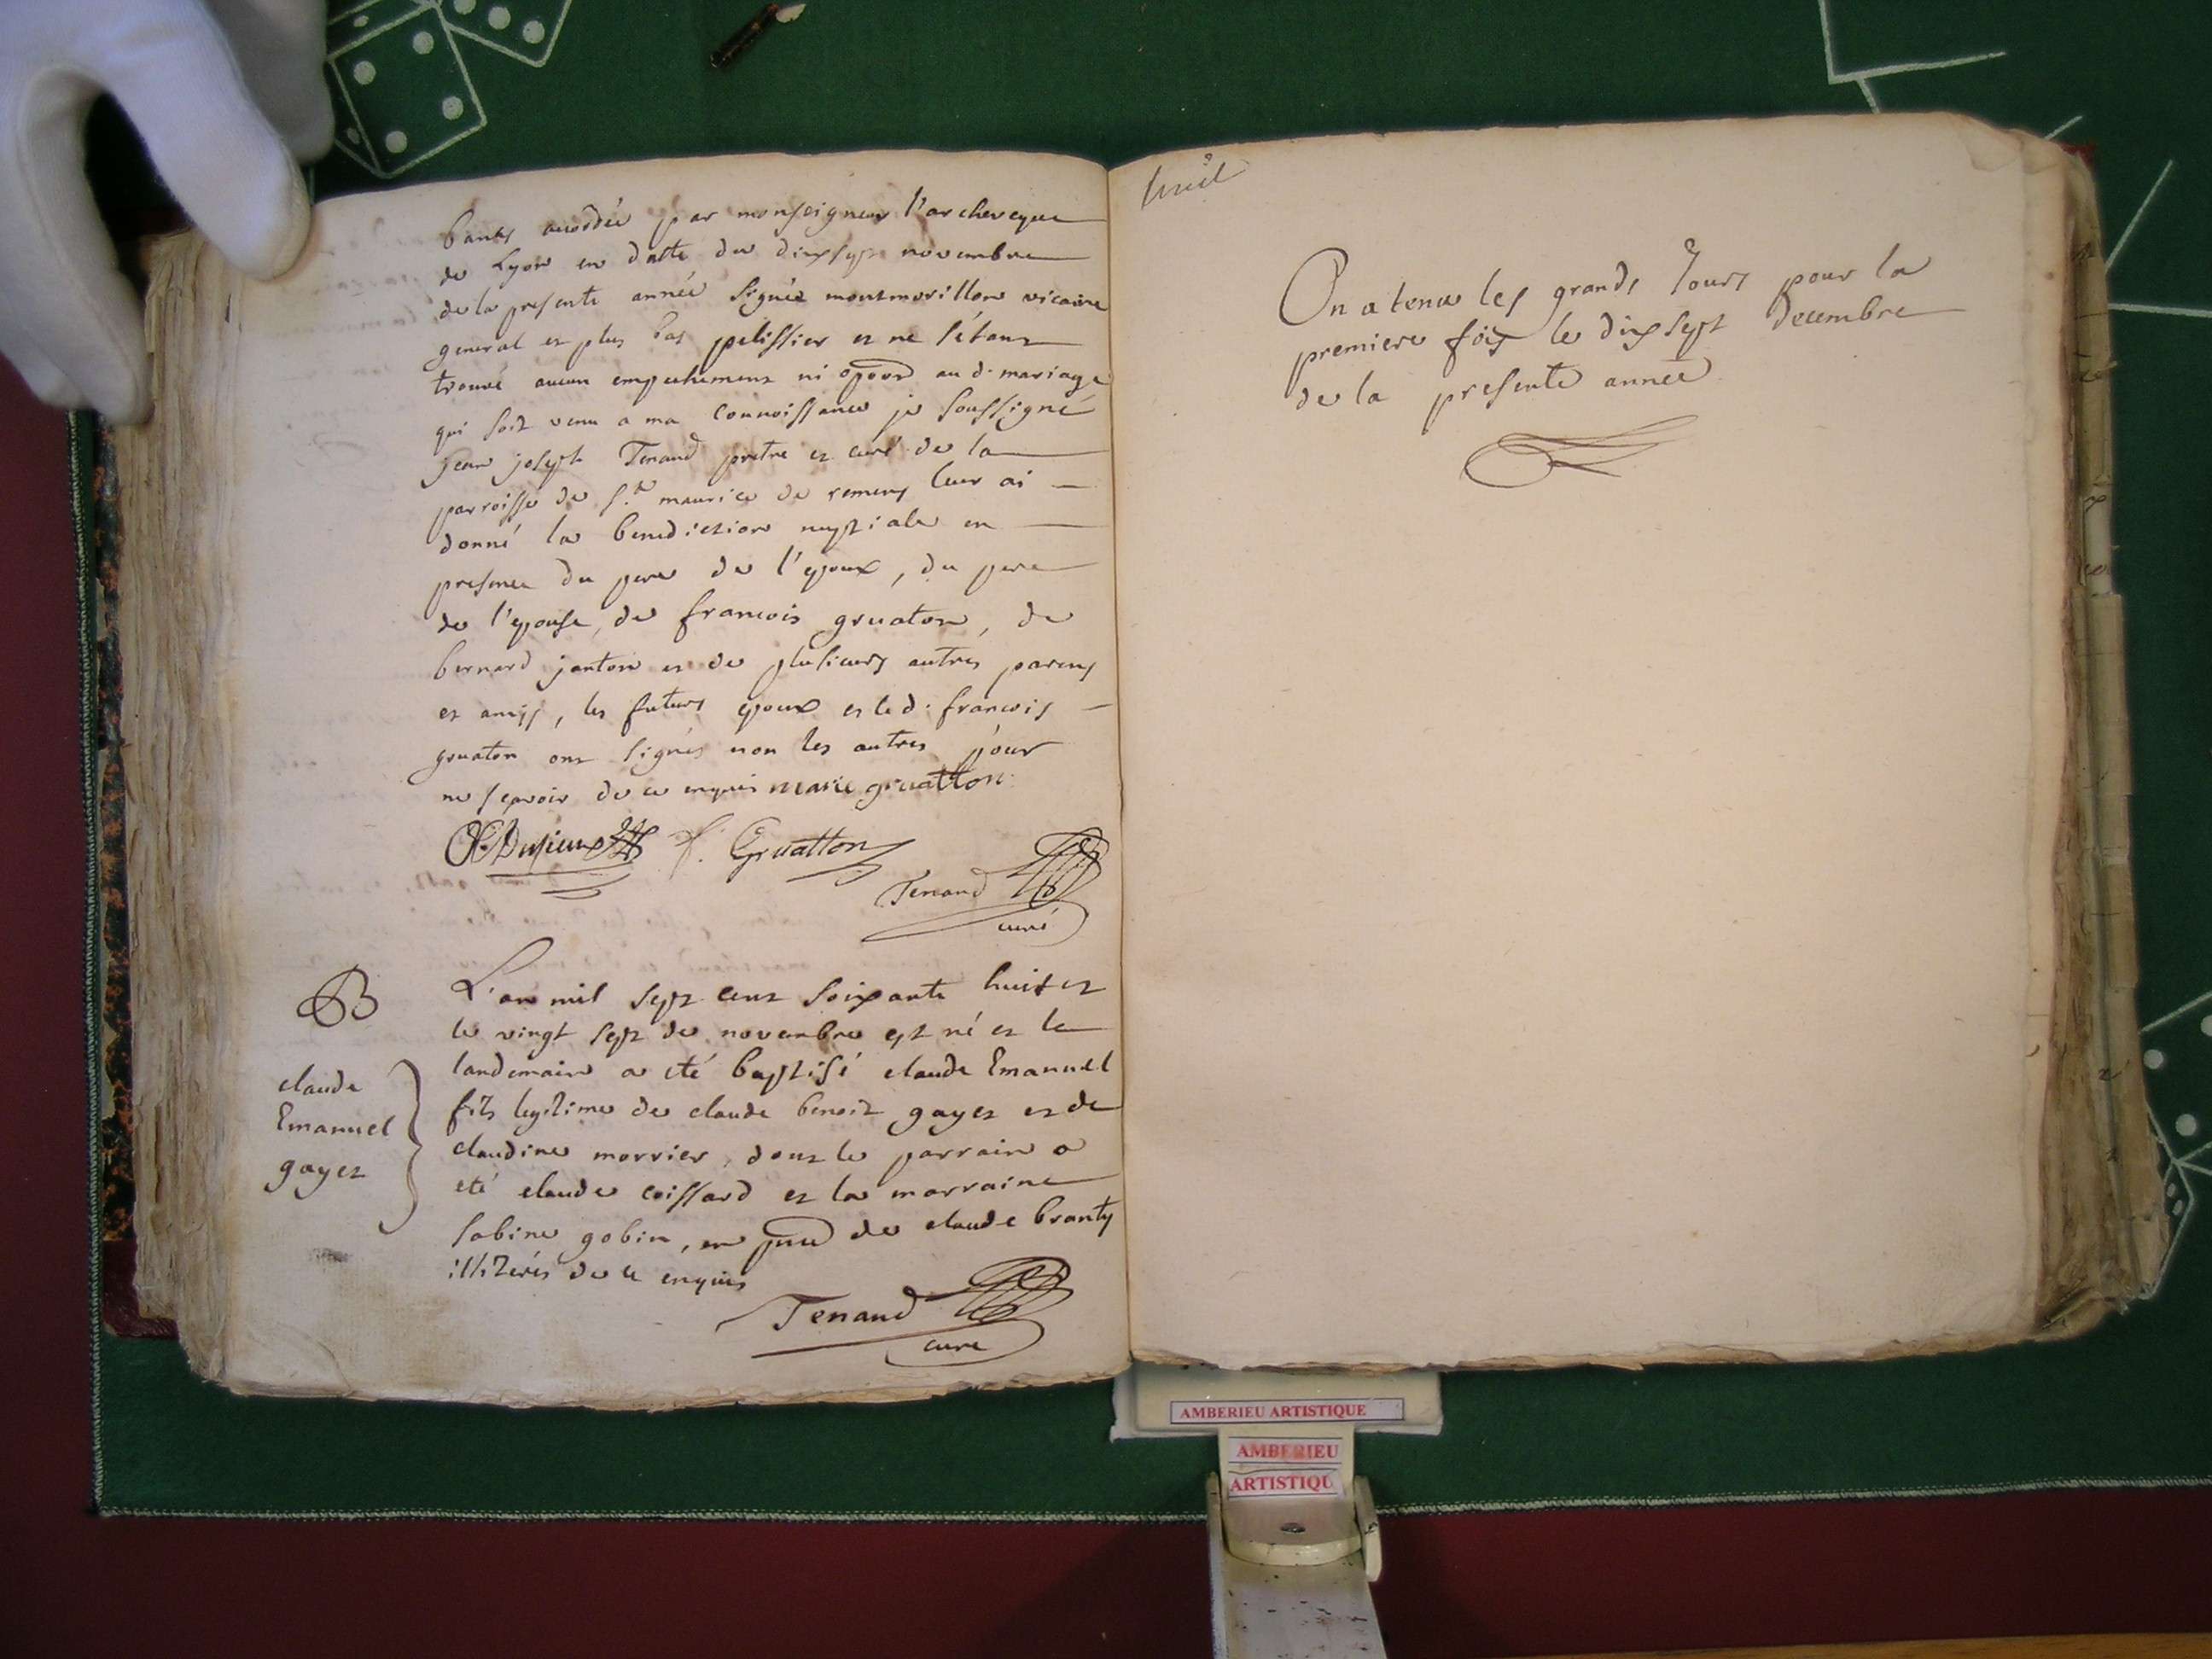 bancs accordée par monseigneur l'archeveque
de Lyon en datte du dixsept novembre
de la presente année signée montmorillon vicaire
general et plus bas pelissier et ne s'étant
trouvé aucun empechement ni oposon au d. mariage
qui soit venu a ma connoissance je soussigné
jean joseph Tenand pretre et curé de la
parroisse de St maurice de remens leur ai
donné la benediction nuptiale en
presence du pere de l'epoux, du pere
de l'epouse, de francois gruaton, de
bernard janton et de plusieurs autres parens
et amys, les futurs epoux et le d. francois
gruaton ont signés non les autres pour
ne sçavoir de ce enquis marie gruatton
f. Gruatton
Tenand
curé
B
L'an mil sept cent soixante huit et
le vingt sept de novembre est né et le
landemain a eté baptisé claude Emanuel
fils legitime de claude benoit gayet et de
claudine morrier, dont le parrain a
eté claude coissard et la marraine
sabine gobin, en pnce de claude branty
illiterés de ce enquis
claude
Emanuel
gayet
Tenand
curé
On a tenu les grands Jours pour la
premiere fois le dixsept decembre
de la presente année
AMBERIEU ARTISTIQUE
AMBERIEU
ARTISTIQU